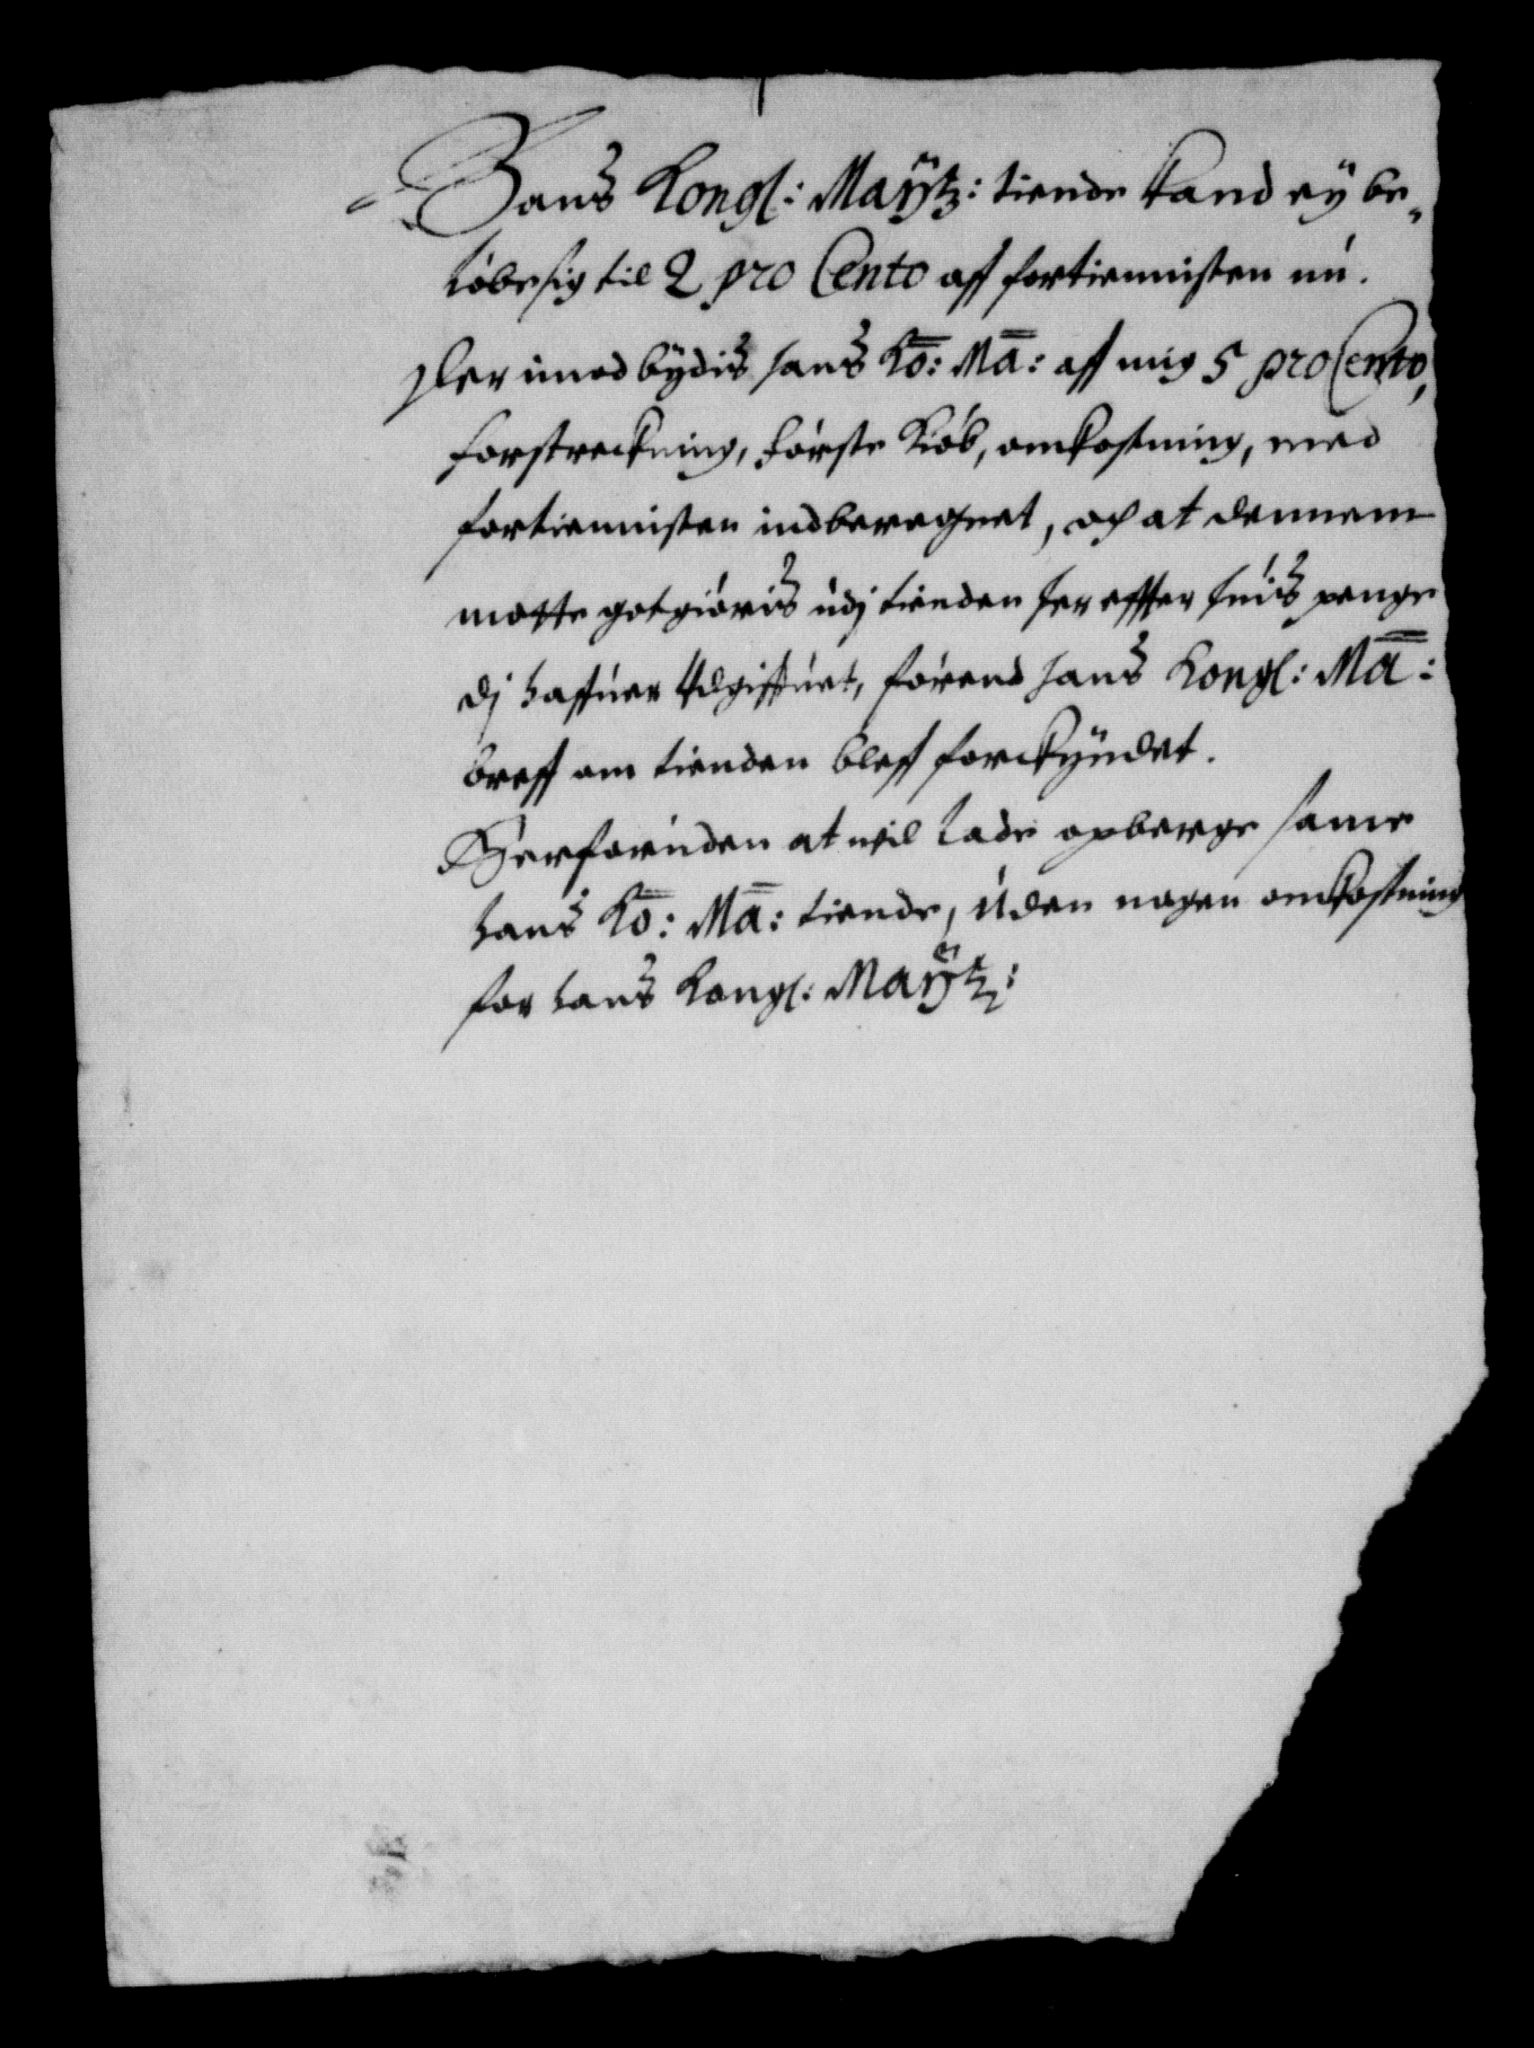 Hans Kongl: Maÿtz: tiende kand eÿ be„
löbe sig til 2 pro Cento aff fortiennisten nu.
Der imod bÿdis hans Ko: Ma: aff mig 5 pro Cento,
forstreckning, förste Kiöb, omkostning, med
fortiennisten indberegnet, och at dennem
motte gotgiöris udj tienden her effter huis penge
dj haffuer Udgiffuet, förend hans Kongl: Ma:
breff om tienden bleff forckÿndet.
Herforuden at wil lade opberge samme
hans Ko: Ma: tiende, Uden nogen omkostning
for hans Kongl: Maÿtz: